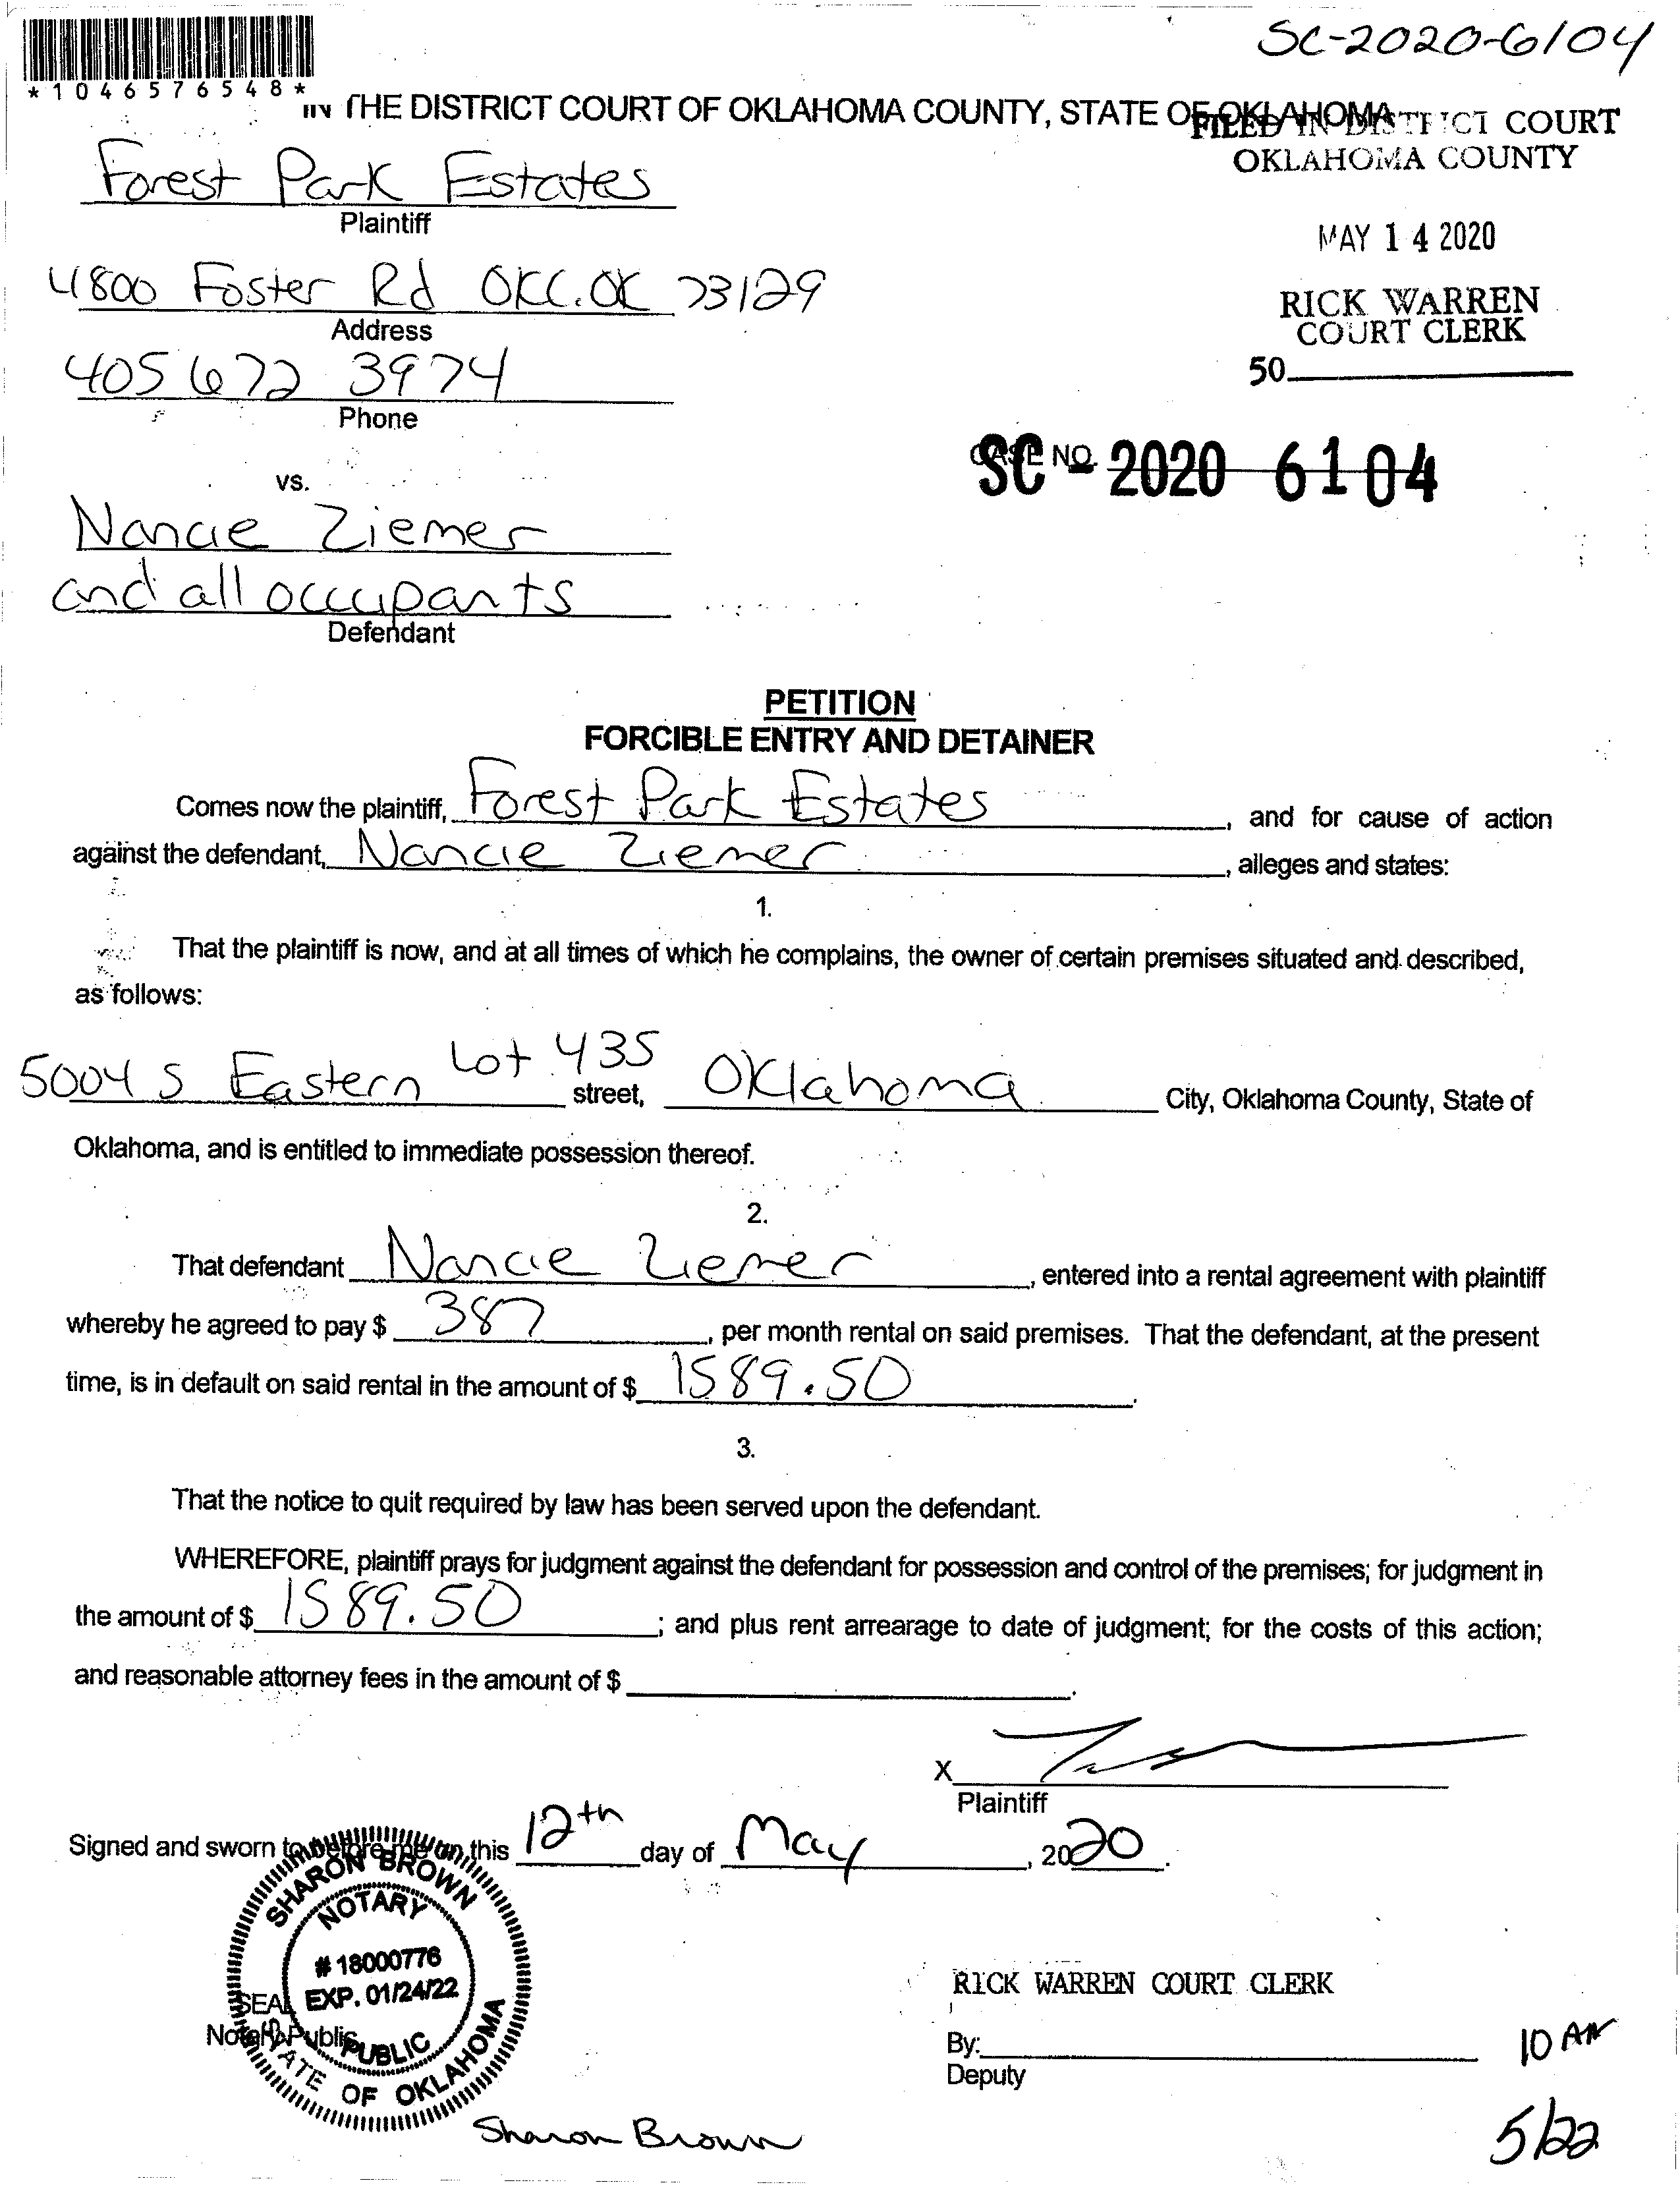 SC-2020-6104
*1046576548*
IN THE DISTRICT COURT OF OKLAHOMA COUNTY, STATE OF OKLAHOMA
FILED IN DISTRICT COURT
OKLAHOMA COUNTY
Forest Park Estates
Plaintiff
MAY 14 2020
4800 Foster Rd OKC. OK 73129
Address
RICK WARREN
COURT CLERK
405 672 3974
Phone
50
CASE NO.
SC - 2020 6104
vs.
Nancie Ziemer
and all occupants
Defendant
PETITION
FORCIBLE ENTRY AND DETAINER
Comes now the plaintiff, Forest Park Estates, and for cause of action
against the defendant, Nancie Ziemer, alleges and states:
1.
That the plaintiff is now, and at all times of which he complains, the owner of certain premises situated and described,
as follows:
5004 S Eastern Lot 435 street, Oklahoma City, Oklahoma County, State of
Oklahoma, and is entitled to immediate possession thereof.
2.
That defendant Nancie Ziemer, entered into a rental agreement with plaintiff
whereby he agreed to pay $ 387, per month rental on said premises. That the defendant, at the present
time, is in default on said rental in the amount of $ 1589.50.
3.
That the notice to quit required by law has been served upon the defendant.
WHEREFORE, plaintiff prays for judgment against the defendant for possession and control of the premises; for judgment in
the amount of $ 1589.50; and plus rent arrearage to date of judgment; for the costs of this action;
and reasonable attorney fees in the amount of $ .
X
Plaintiff
Signed and sworn to before me on this 12th day of May, 2020.
SHARON BROWN
NOTARY
# 18000776
EXP. 01/24/22
PUBLIC
STATE OF OKLAHOMA
SEAL
Notary Public
RICK WARREN COURT CLERK
By:
Deputy
10 AM
5/22
Sharon Brown